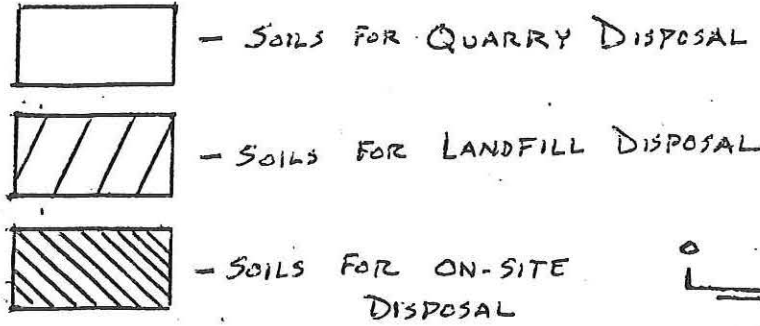 - SOILS FOR QUARRY DISPOSAL
- SOILS FOR LANDFILL DISPOSAL
- SOILS FOR ON-SITE
DISPOSAL
0